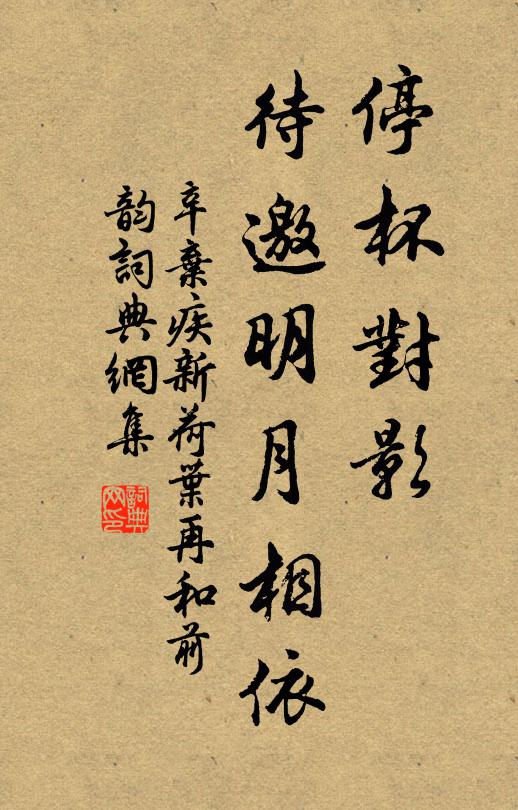 停杯對影
待邀明月相依
辛棄疾新荷葉再和前
韵詞典網集
詞典
网印